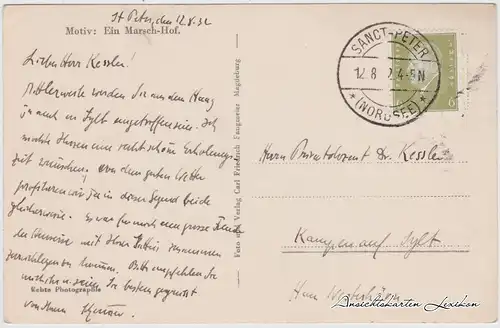 St Peter, den 12.8.32
Motiv: Ein Marsch-Hof.
Lieber Herr Kessler!
Mittlerweile werden Sie aus dem Haag
ja auch in Sylt angekommen sein. Ich
möchte Ihnen eine recht schöne Erholungs-
zeit wünschen. Von dem guten Wetter
profitieren wir ja in dieser Gegend beide
gleicherweise. Es war für mich eine grosse Freude
die Chinoise mit Ihrer
zu können. Bitte empfehlen Sie
mich u. seien Sie bestens gegrüsst
von Ihrem
Echte Photographie
Foto und Verlag Carl Friedrich Fangmeier Magdeburg
SANCT-PETER
12.8 2.4-9N
* (NORDSEE) *
6
Herrn Privatdozent Dr. Kessler
Kampen auf Sylt
Haus
Ansichtskarten Lexikon